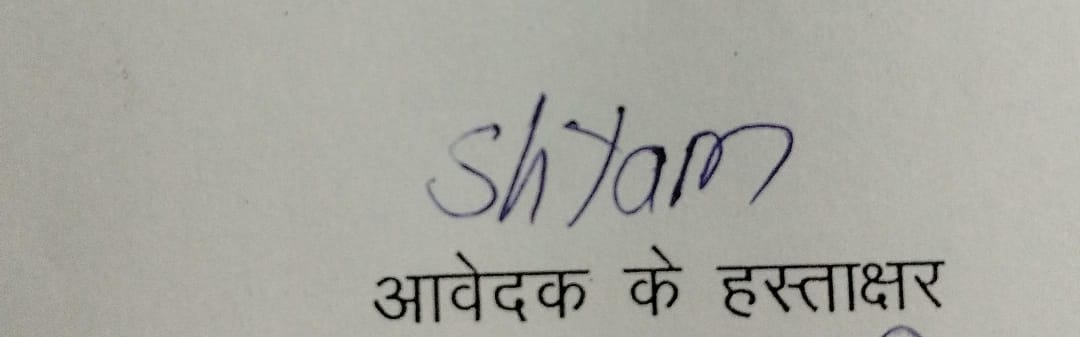 Shyam
आवेदक के हस्ताक्षर